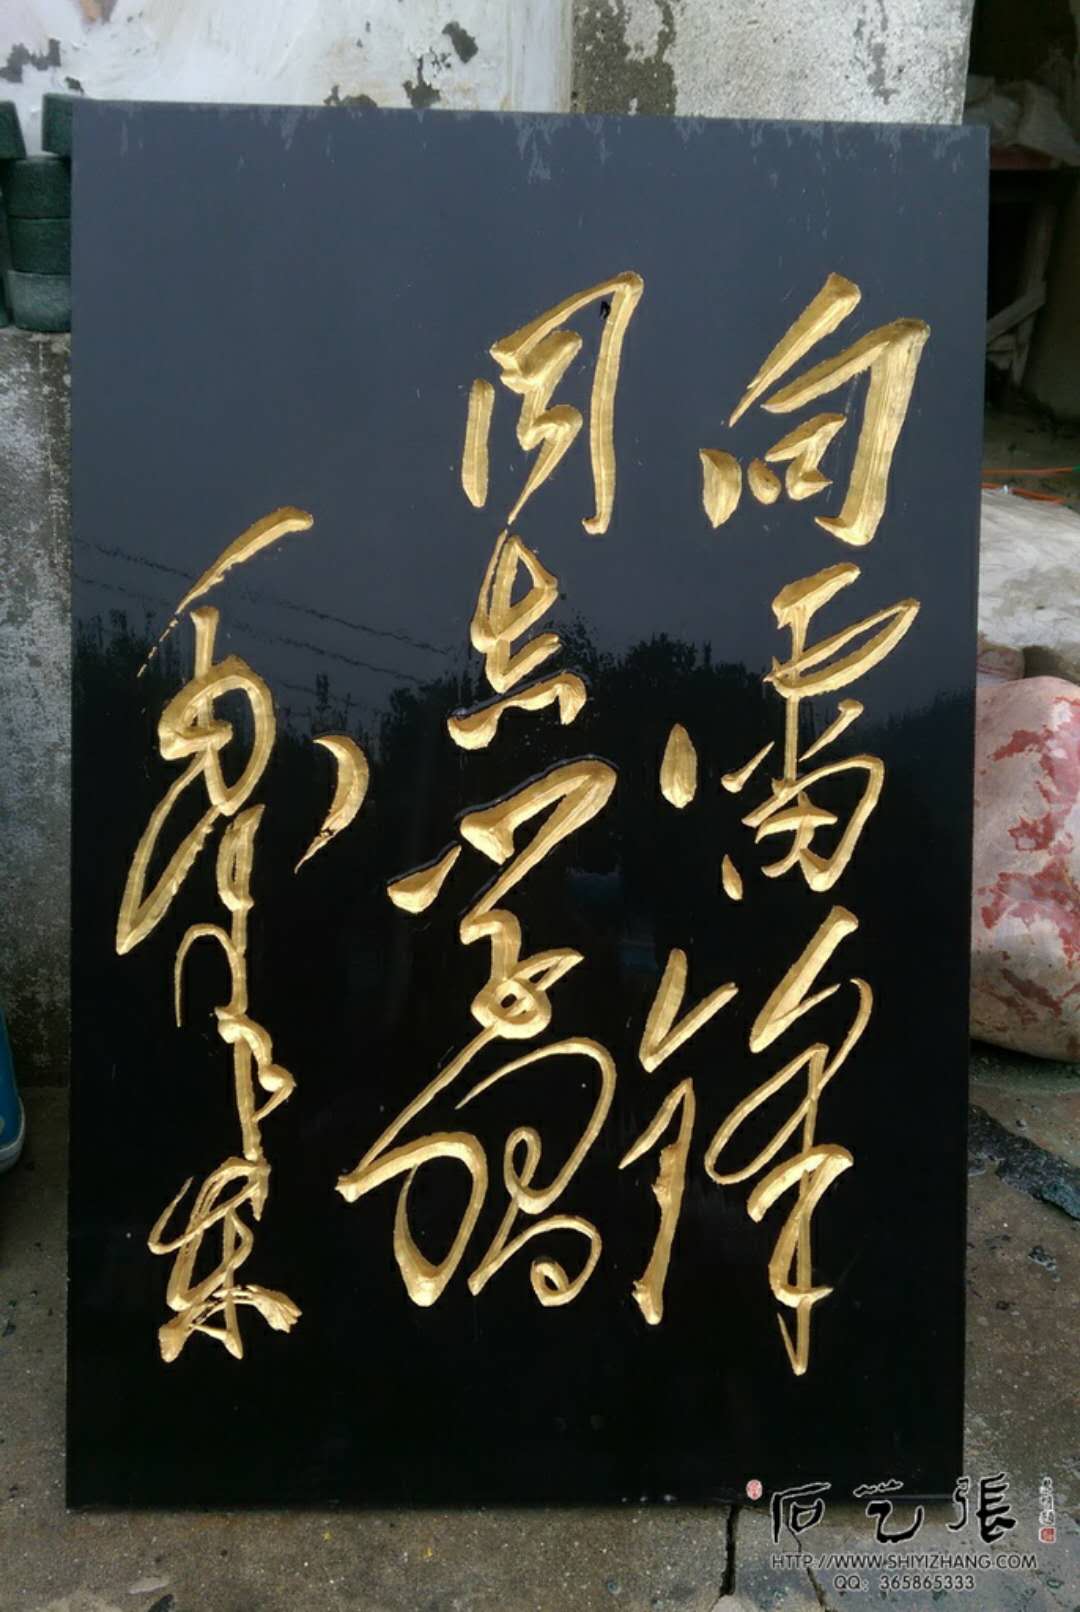 向雷锋
同志学习
毛泽东
石艺張
HTTP://WWW.SHIYIZHANG.COM
QQ: 365865333